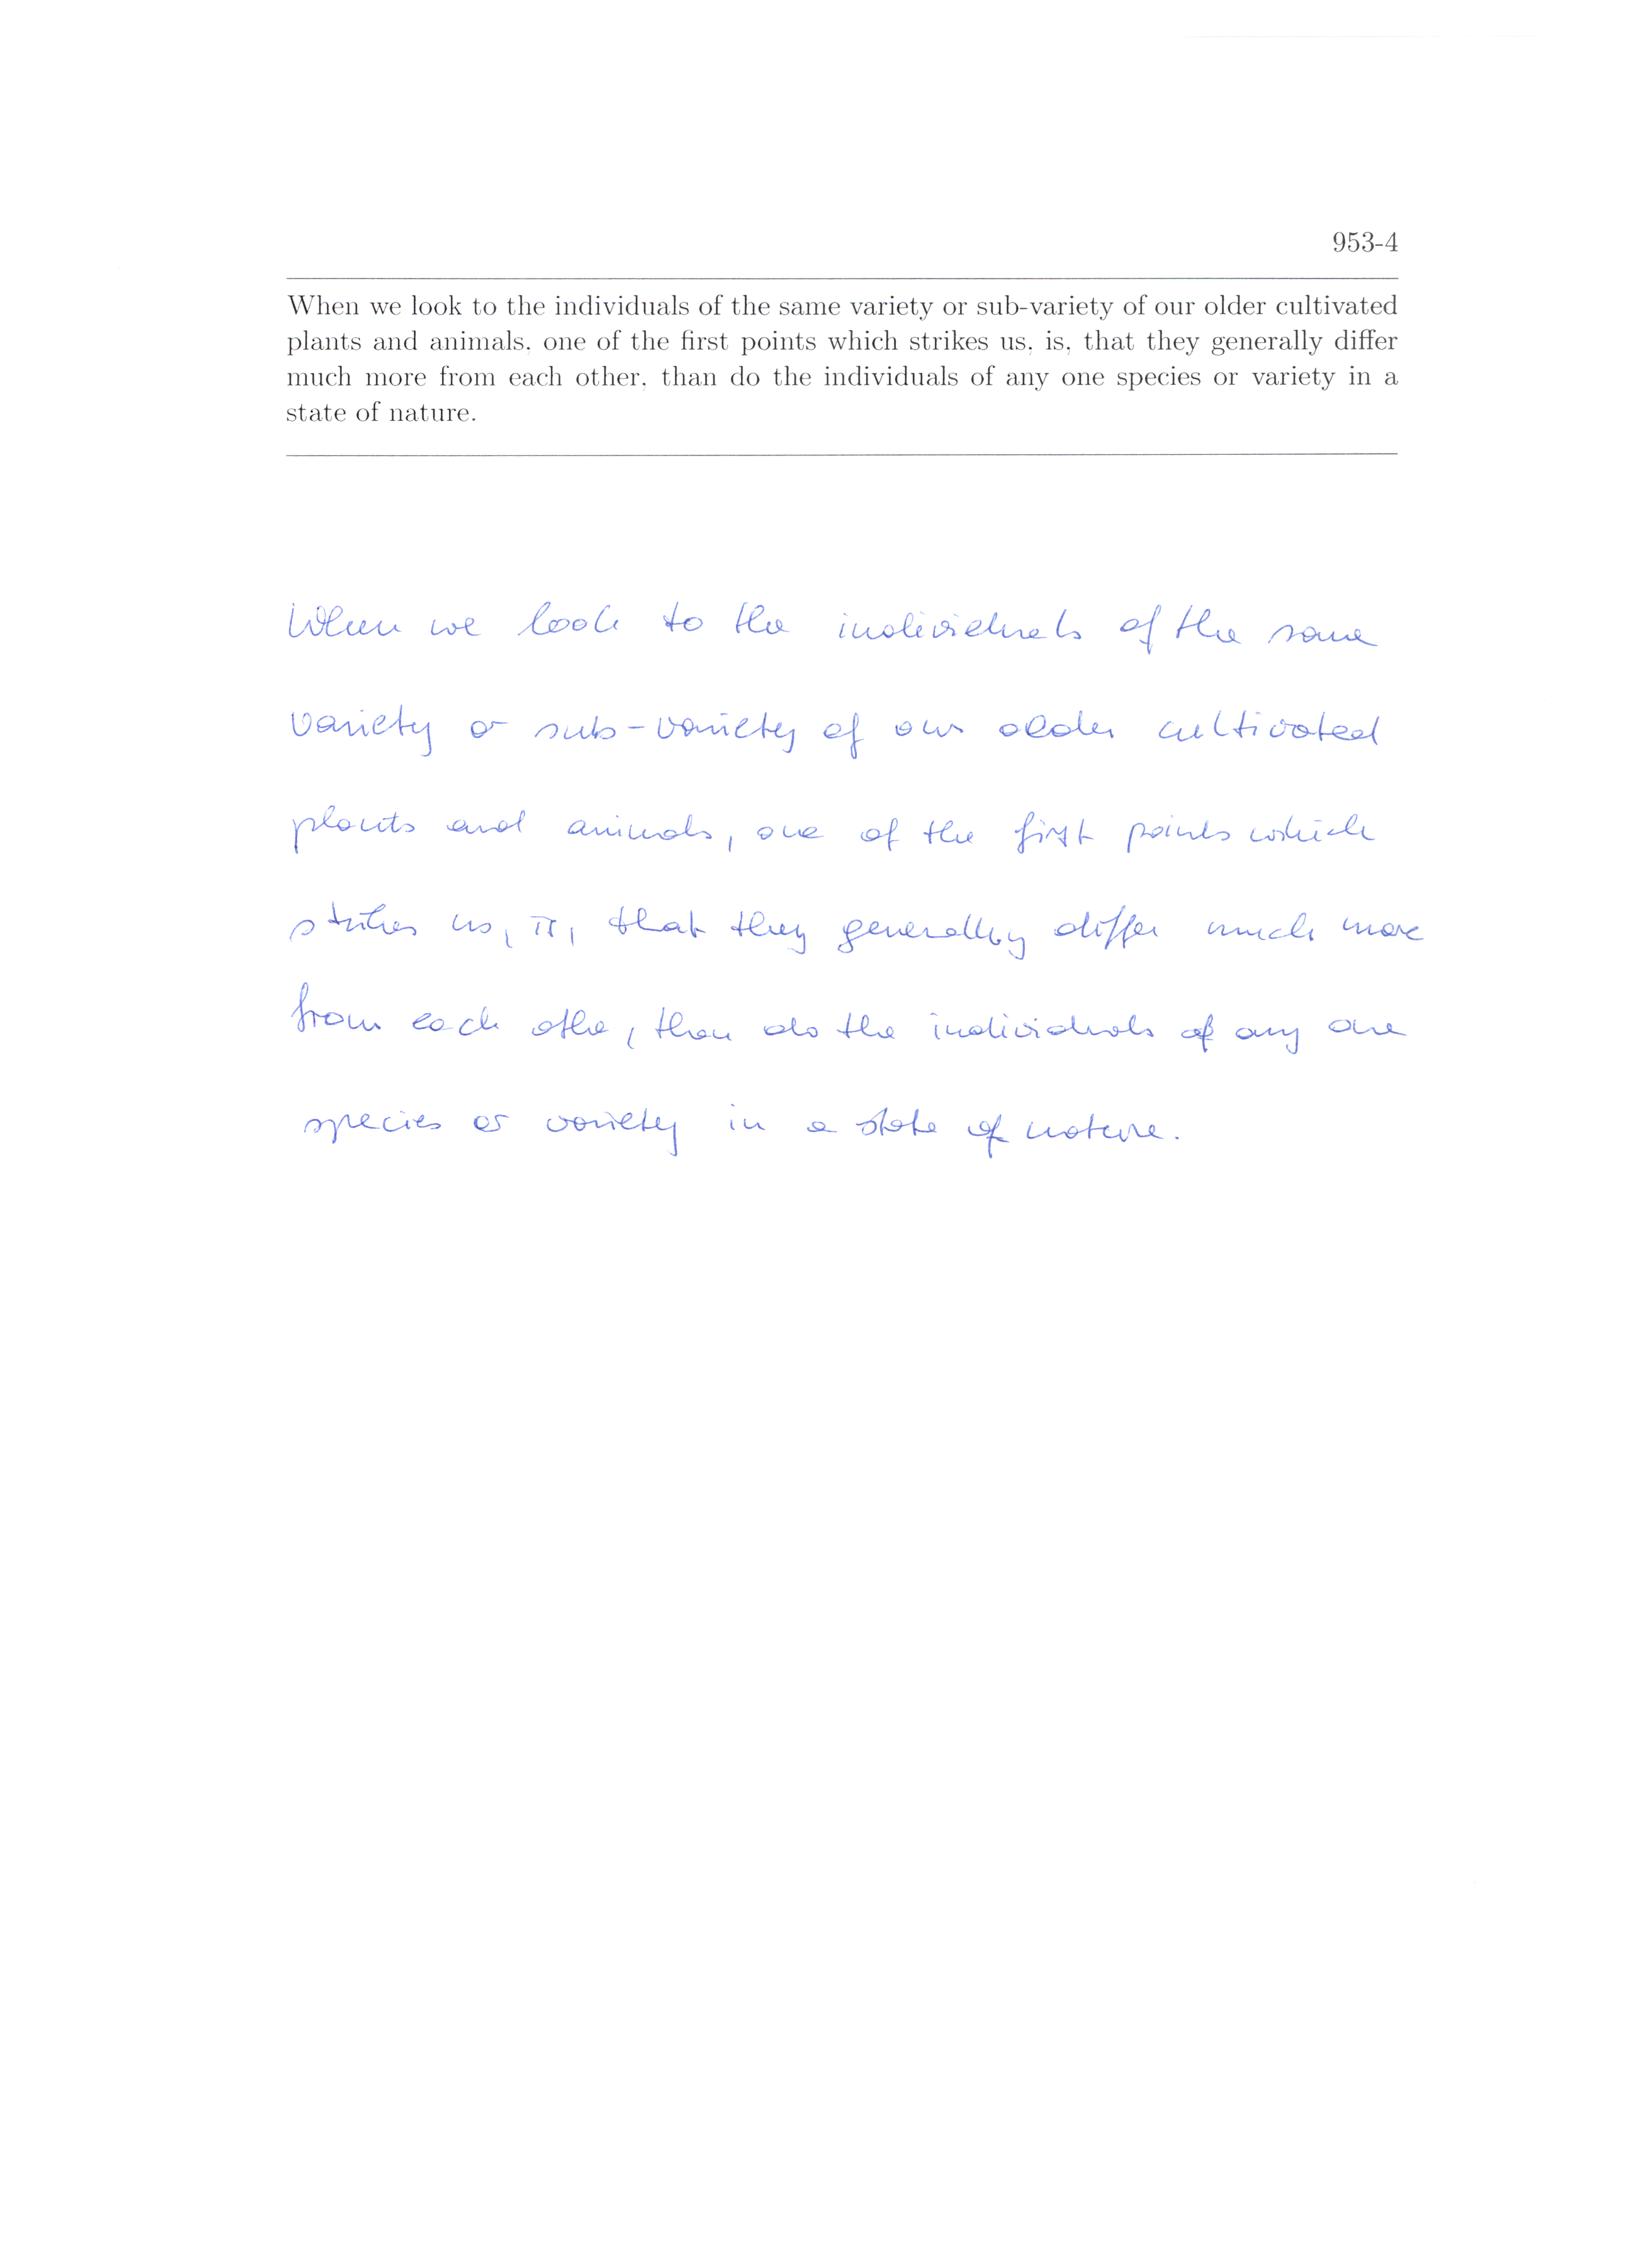 953-4
When we look to the individuals of the same variety or sub-variety of our older cultivated
plants and animals, one of the first points which strikes us, is, that they generally differ
much more from each other, than do the individuals of any one species or variety in a
state of nature.
When we look to the individuals of the same
variety or sub-variety of our older cultivated
plants and animals, one of the first points which
strikes us, is, that they generally differ much more
from each othe, than do the individuals of any one
species or variety in a state of nature.